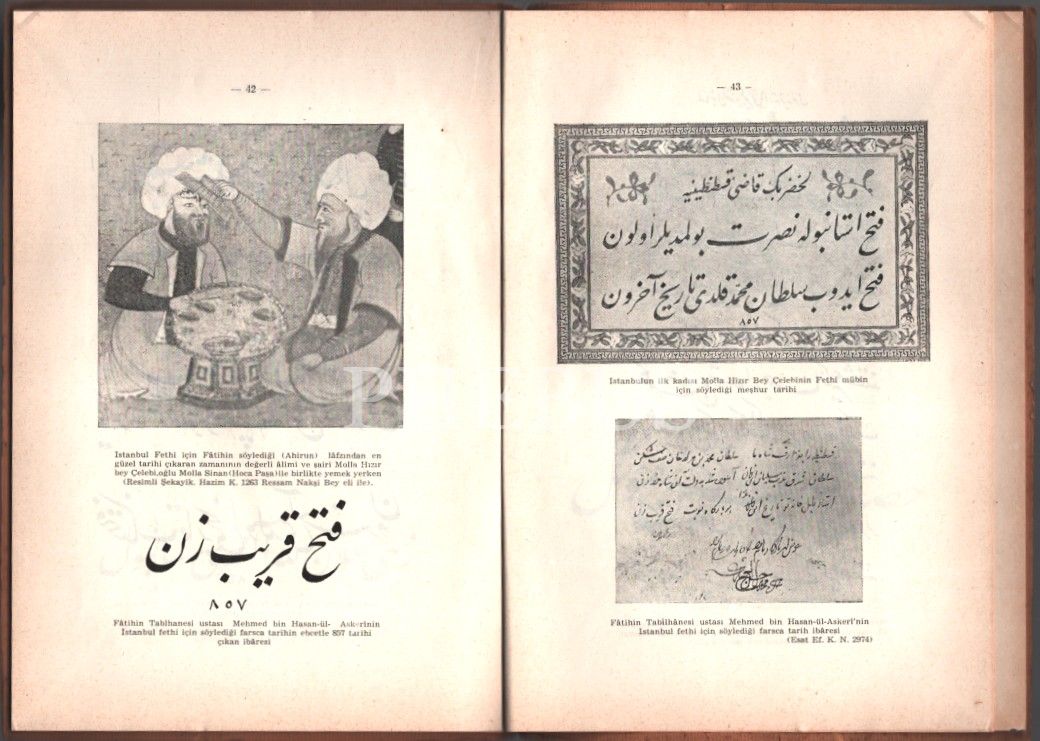 — 42 —
İstanbul Fethi için Fâtihin söylediği (Ahirun) lâfzından en
güzel tarihi çıkaran zamanının değerli âlimi ve şairi Molla Hızır
bey Çelebi.oğlu Molla Sinan(Hoca Paşa)ile birlikte yemek yerken
(Resimli Şekayik. Hazim K. 1263 Ressam Nakşi Bey eli ile).
فتح قريب زن
٨٥٧
Fâtihin Tabîhanesi ustası Mehmed bin Hasan-ül- Askerinin
İstanbul fethi için söylediği farsca tarihin ebcetle 857 tarihi
çıkan ibâresi
— 43 -
لخضر بك قاضی قسطنطینیه
فتح استانبوله نصرت بولمديلر اولون
فتح ايدوب سلطان محمد قلدی تاریخ آخرون
٨٥٧
İstanbulun ilk kadısı Molla Hizır Bey Çelebinin Fethi mübin
için söylediği meşhur tarihi
Fâtihin Tabîlhânesi ustası Mehmed bin Hasan-ül-Askerî'nin
İstanbul fethi için söylediği farsca tarih ibâresi
(Esat Ef. K. N. 2974)